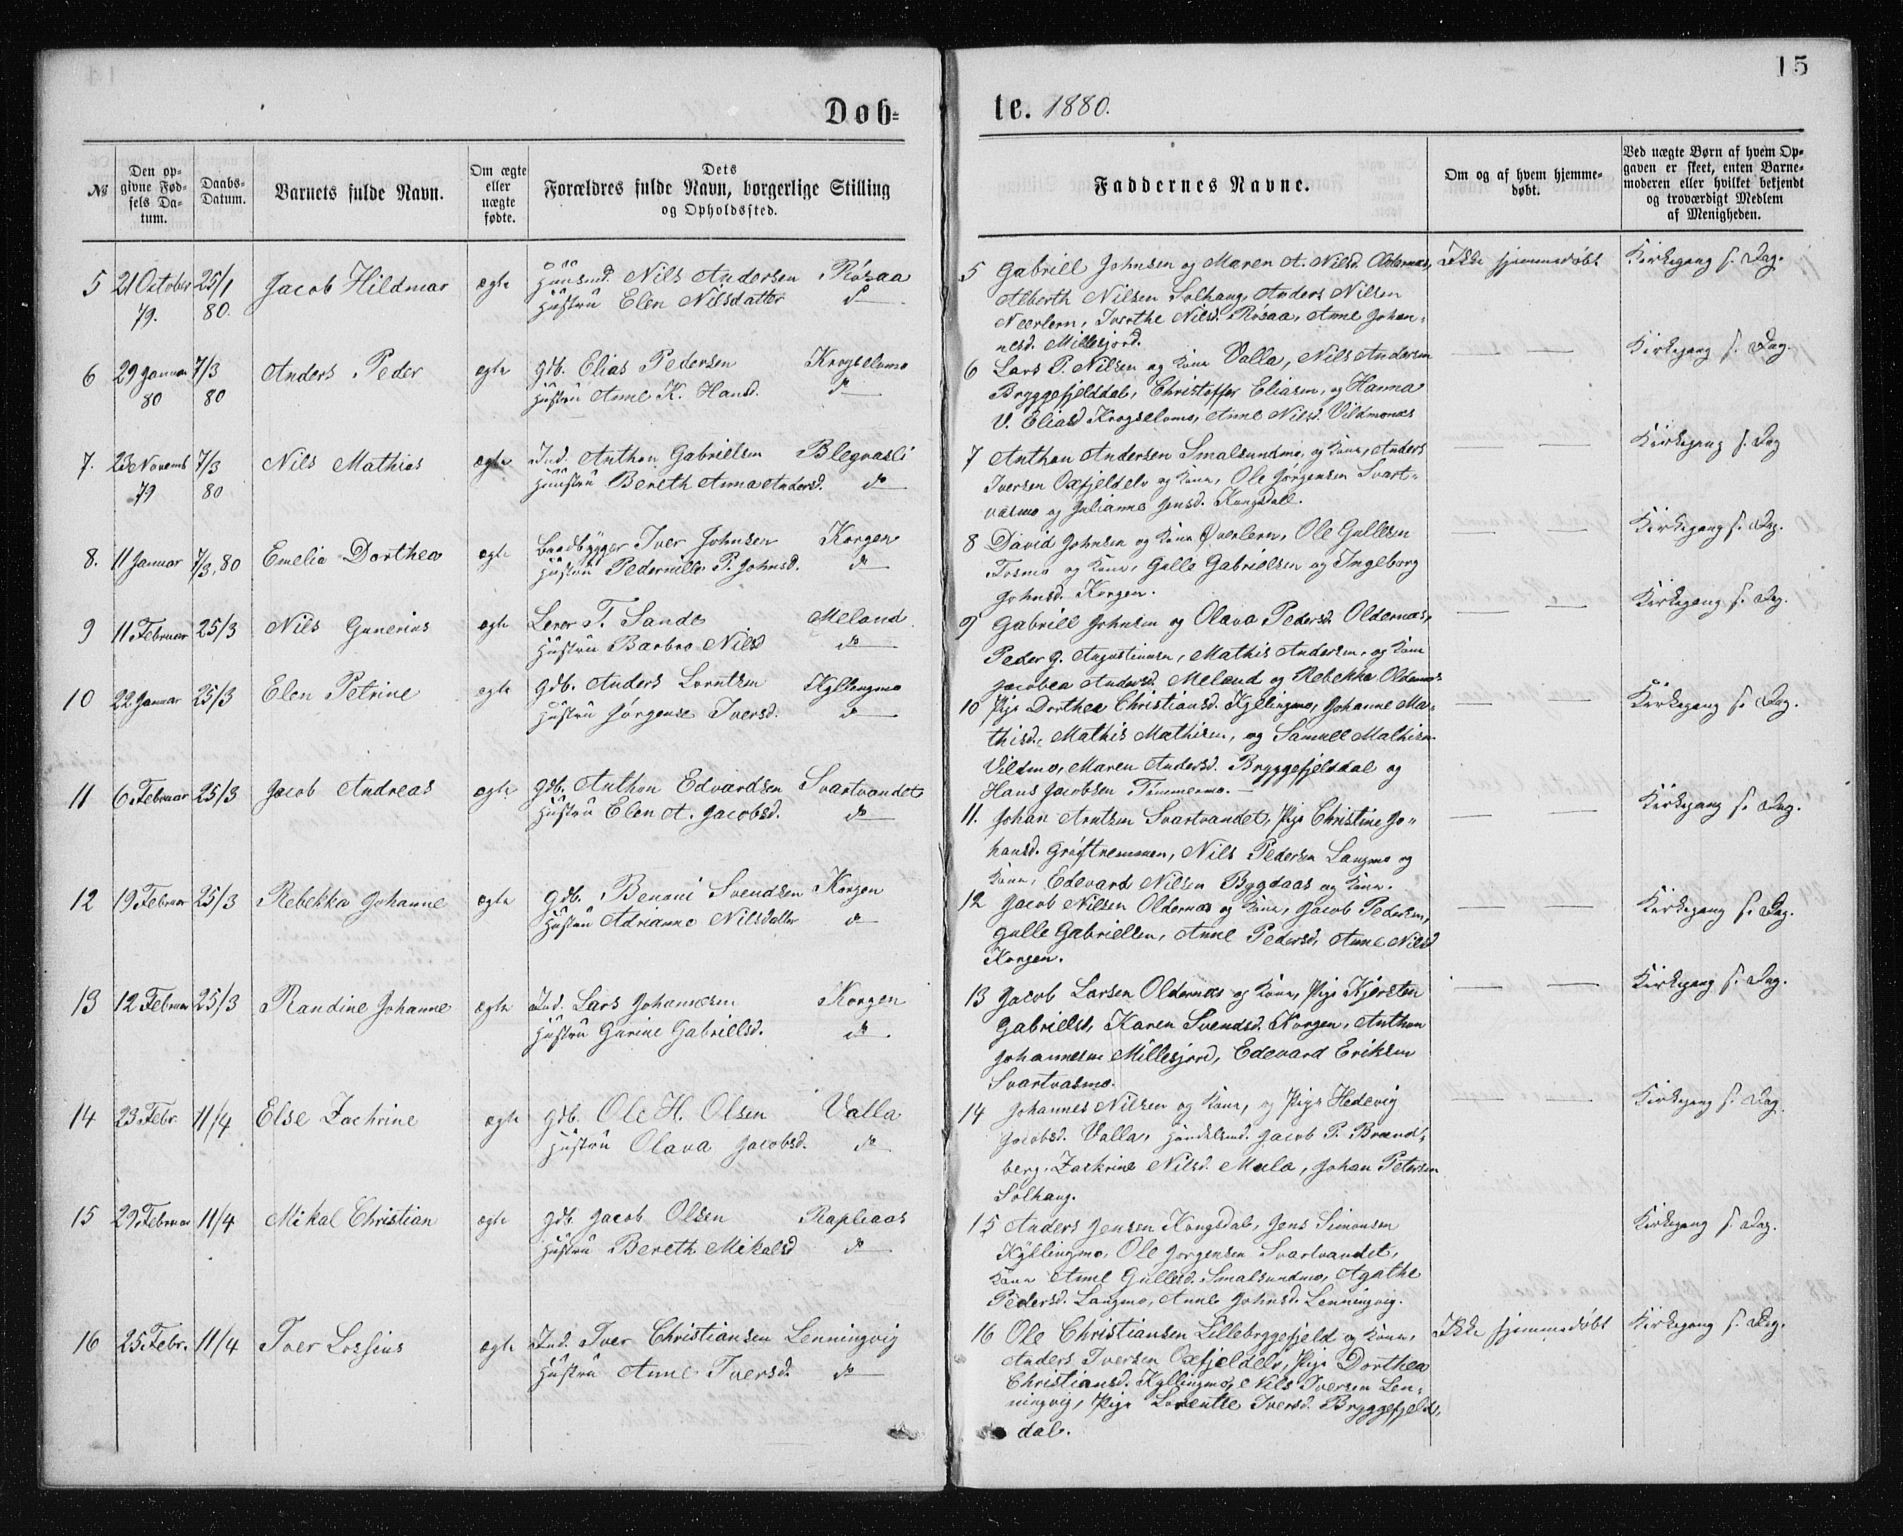 15
Døb=
te. 1880.
№
Den op-
givne Fød-
sels Da-
tum.
Daabs-
Datum.
Barnets fulde Navn.
Om ægte
eller
uægte
fødte.
Dets
Forældres fulde Navn, borgerlige Stilling
og Opholdssted.
Faddernes Navne.
Om og af hvem hjemme-
døbt.
Ved uægte Børn af hvem Op-
gaven er skeet, enten Barne-
moderen eller hvilket bekjendt
og troværdigt Medlem
af Menigheden.
5 21 October 25/1 Jacob Hildmar ægte Huusmd. Nils Andersen Røsaa
79. 80. Hustru Elen Nilsdatter do
6 29 Januar 7/3 Anders Peder ægte Gdb. Elias Pedersen Krogselvmo
80 80 Hustru Anne K. Hansd. do
7. 23 Novemb 7/3 Nils Mathias ægte Ind. Anthon Gabrielsen Blegvasli
79 80 Hustru Bereth Anna Andersd. do
8. 11 Januar 7/3, 80 Emelia Dorthea ægte Baadbygger Iver Johnsen Korgen
Hustru Pedernille P. Johnsd. do
9 11 Februar 25/3 Nils Gunerius ægte Lerer T. Sande Meland.
Hustru Barbro Nilsd do
10 22 Januar 25/3 Elen Petrine ægte Gdb. Anders Lorntsen Kyllingmo
Hustru Jørgense Iversd. do
11 6 Februar 25/3 Jacob Andreas ægte Gdb. Anthon Edvardsen Svartvandet
Hustru Elen A. Jacobsd. do
12 19 Februar 25/3 Rebekka Johanne ægte Gdb. Benoni Svendsen Korgen
Hustru Adrianne Nilsdatter do
13 12 Februar 25/3 Randine Johanne ægte Ind. Lars Johannesen Korgen
Hustru Gurine Gabrielsd. do
14 23 Febr. 11/4 Else Zachrine ægte Gdb. Ole H. Olsen Valla
Hustru Olava Jacobsd. do
15 29 Februar 11/4 Mikal Christian ægte Gdb. Jacob Olsen Rapliaas
Hustru Bereth Mikalsd do
16 25 Febr. 11/4 Iver Lossius ægte Ind. Iver Christiansen Lenningvig
Hustru Anne Iversd. do
5 Gabriel Johnsen og Maren A. Nilsd. Oldernæs, Ikke hjemmedøbt Kirkegang s. Dag.
Alberth Nilsen Solhaug, Anders Nilsen
Nerlern, Dorthe Nilsd. Røsaa, Anne Johan-
nesd. Millesjord.
6 Lars P. Nilsen og Kone Valla, Nils Andersen Kirkegang s. Dag.
Bryggefjelddal, Christoffer Eliasen, og Hanna
V. Eliasd Krogselvmo, Anne Nilsd. Vildmones
7 Anthon Andersen Smalsundmo, og Kone, Anders Kirkegang s. Dag
Iversen Oxfjeldelv og Kone, Ole Jørgensen Svart-
vasmo og Julianne Jensd. Kongsdall.
8 David Johnsen og Kone Øverlern, Ole Gullesen Kirkegang s. Dag.
Tosmo og Kone, Gulle Gabrielsen og Ingeborg
Johnsd. Korgen.
9 Gabriel Johnsen og Olava Pedersd. Oldernæs, Kirkegang s. Dag.
Peder G. Augustinusen, Mathis Andersen, og Kone
Jacobea Andersd. Meland og Rebekka Oldernæs
10 Pige Dorthea Christiansd. Kyllingmo, Johanne Ma- Kirkegang s. Dag.
thisd, Mathis Mathisen, og Samuel Mathisen
Vildmo, Maren Andersd. Bryggefjelddal og
Hans Jacobsen Timmermo.
11. Johan Arntsen Svartvandet, Pige Christine Jo- Kirkegang s. Dag.
hansd. Grøftremmen, Nils Pedersen Langmo og
Kone, Edevard Nilsen Bygdaas og Kone.
12 Jacob Nilsen Oldernæs og Kone, Jacob Pedersen, Kirkegang s. Dag.
Gulle Gabrielsen, Anne Pedersd, Anne Nilsd
Korgen.
13 Jacob Larsen Oldernæs og Kone, Pige Kjersten Kirkegang s. Dag.
Gabrielsd, Karen Svendsd. Korgen, Anthon
Johannesen Millesjord, Edevard Eriksen
Svartvasmo.
14 Johannes Nilsen og Kone, og Pige Hedevig Kirkegang s. Dag.
Jacobsd. Valla, Handelsmd. Jacob P. Brandt-
berg, Zackrine Nilsd. Mula, Johan Petersen
Solhaug.
15 Anders Jensen Kongsdal, Jens Simonsen Kirkegang s. Dag.
Kyllingmo, Ole Jørgensen Svartvandet,
Kone Anne Gullesd. Smalsundmo, Agathe
Pedersd. Langmo, Anne Johnsd. Lenningvig.
16 Ole Christiansen Lillebryggefjeld og Kone, Ikke hjemmedøbt Kirkegang s. Dag.
Anders Iversen Oxfjeldelv, Pige Dorthea
Christiansd. Kyllingmo, Nils Iversen Len-
ningvig, Pige Lorentse Iversd. Bryggefjeld-
dal.